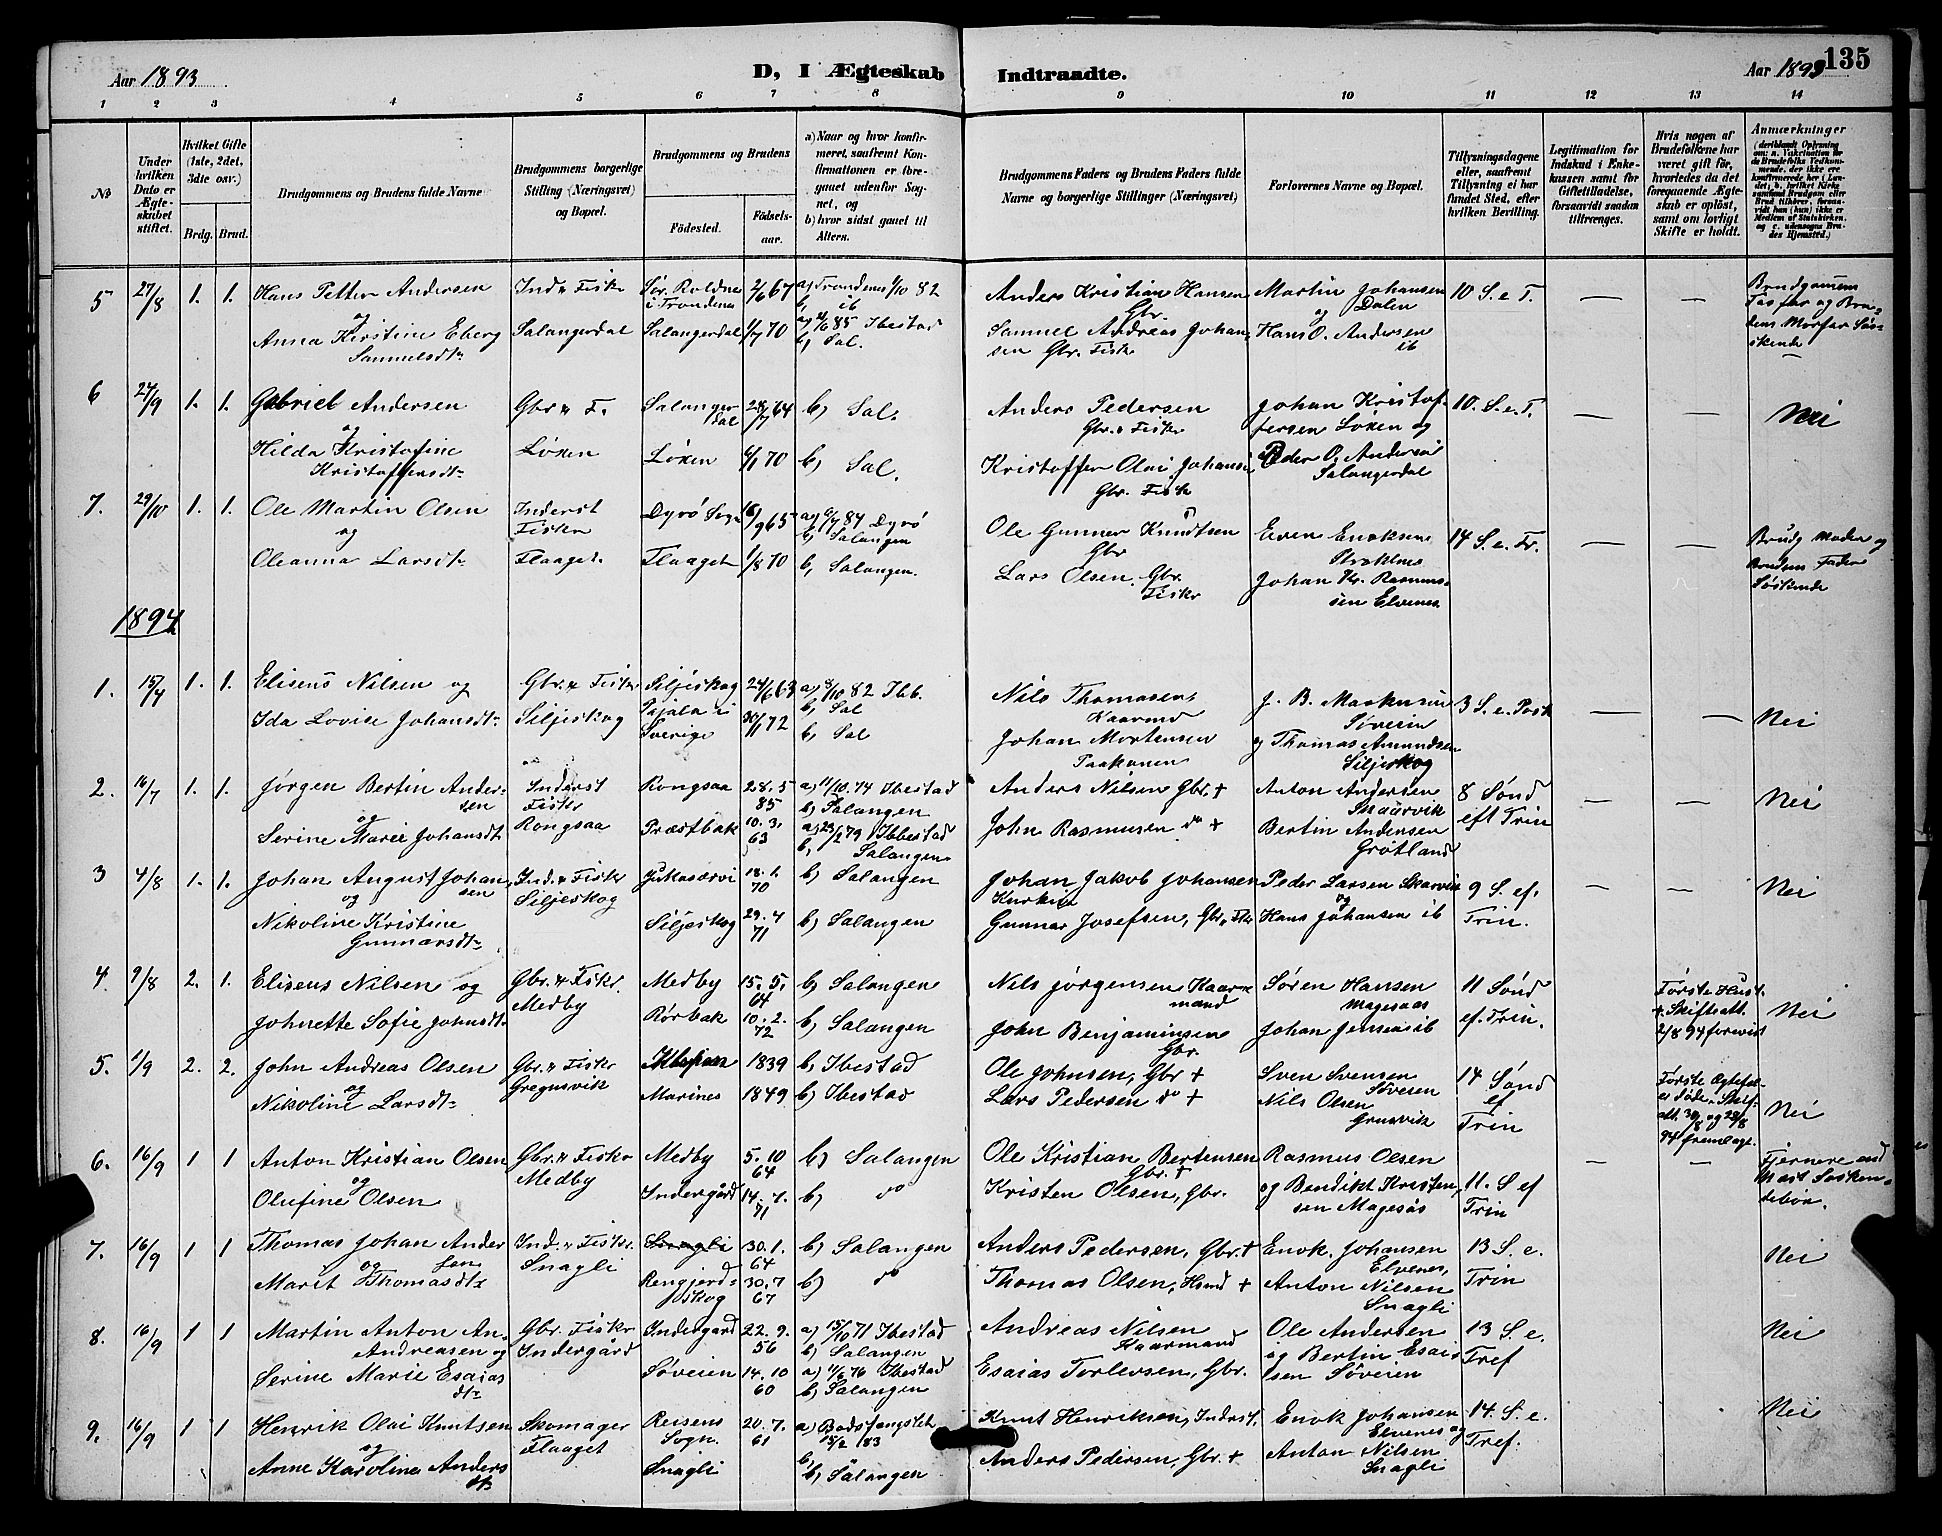 Aar 1893 D, I Ægteskab Indtraadte. Aar 1893 135
1 2 3 4 5 6 7 8 9 10 11 12 13 14
No
Under hvilken Dato er Ægteskabet stiftet.
Hvilket Gifte (1ste, 2det, 3die osv.)
Brdg. Brud.
Brudgommens og Brudens fulde Navne
Brudgommens borgerlige Stilling (Næringsvei) og Bopæl.
Brudgommens og Brudens
Födested. Födsels-aar.
a) Naar og hvor konfirmeret, saafremt Konfirmationen er foregaaet udenfor Sognet, og
b) hvor sidst gaaet til Altern.
Brudgommens Faders og Brudens Faders fulde Navne og borgerlige Stillinger (Næringsvei)
Forlovernes Navne og Bopæl.
Tillysningsdagene eller, saafremt Tillysning ei har fundet Sted, efter hvilken Bevilling.
Legitimation for Indskud i Enkekassen samt for Giftetilladelse, forsaavidt saadan tiltrænges.
Hvis nogen af Brudefolkene har været gift för, hvorledes da det foregaaende Ægteskab er oplöst, samt om lovligt Skifte er holdt.
Anmærkninger
5 27/8 1. 1. Hans Petter Andersen Ind. & Fiskr Sør. Roldnes 2/6 67 a) Trondenes 1/10 82 Anders Kristian Hansen Martin Johansen 10 S. e T. — — Brudgommens
og Salangerdal i Trondenes b, ib Gbr. Dalen Farfar og Bru-
Anna Kirstine Eberg Salangerdal 1/7 70 a) 21/6 85 Ibestad Samuel Andreas Johan- og Hans O. Andersen dens Morfar Søs-
Samuelsdtr b) Sal. sen Gbr. Fiskr ib skende
6 24/9 1. 1. Gabriel Andersen Gbr. & F. Salanger 28/7 64 b) Sal. Anders Pedersen Johan Kristof- 10. S. e. T. — — Nei
og dal Gbr. & Fiskr fersen Løxen og
Hilda Kristofine Løxen Løxen 6/1 70 b) Sal. Kristoffer Olai Johansen Peder O. Andersen
Kristoffersdtr Gbr. Fiskr Salangerdal
7. 29/10 1. 1. Ole Martin Olsen Inderst Dyrö Sogn 16/9 65 a) 6/7 84 Dyrö Ole Gunner Knudtsen Even Enoksen 14 S. e. Tr. — — Brudg Moder og
og Fisker b) Salangen Gbr Brudens Fader
Oleanna Larsdtr Flaaget. Flaaget 1/8 70 b, Salangen. Lars Olsen, Gbr. Johan Kr. Rasmus- Söskende
Fiskr sen Elvenes
1894
1. 15/4 1. 1. Elisens Nilsen og Gbr. & Fisker Siljeskog 24/6 63 a) 8/10 82 Ibb. Nils Thomasen J. B. Markusen 3 S. e. Pask — — Nei
Ida Lovise Johansdtr Siljeskog Pajala i 30/11 72 b, Sal Kaarmd Søveien
Sverige b, Sal Johan Mortensen og Thomas Amundsen
Paakonen Siljeskog
2. 16/7 1. 1. Jørgen Bertin Ander- Inderst Rongsaa 28. 5 a) 11/10. 74 Ibestad Anders Nilsen Gbr. + Anton Andersen 8 Sønd — — Nei
sen Fisker 85 b) Salangen Snaarvik eft Trin
og Rongsaa Præstbak 10. 3. a) 23/2 79 Ibbestad John Rasmusen do + Bertin Andersen
Serine Marie Johansdtr 63 b, Salangen Grøtland
3 4/8 1. 1. Johan August Johan- Ind. & Fiskr Jukasærvi 18. 1. b) Salangen Johan Jakob Johansen Peder Larsen Skarvik 9 S. ef. — — Nei
sen Siljeskog 70 Kurkio og Trin.
og
Nikoline Kristine Siljeskog 29. 4 b) Salangen Gunnar Josefsen, Gbr. & Fskr Hans Johansen ib
Gunnarsdtr 71
4. 9/8 2. 1. Eliseus Nilsen og Gbr. & Fiskr. Medby 15. 5. b) Salangen Nils Jørgensen Kaar- Søren Hansen 11 Sønd Første Hust. Nei
Medby 64 mand Magesaas ef. Trin. & Skifteatt.
Johnette Sofie Johnsdtr Rørbak 10. 2. b) Salangen John Benjaminsen Johan Jensen ib 2/8 94 forevist
72 Gbr.
5. 1/9 2. 2. John Andreas Olsen Gbr. & Fiskr 1839 b, Ibestad Ole Johnsen, Gbr + Sven Svensen 14 Sønd Første Ægtefæl- Nei
og Gregusvik Søveien ef
Nikoline Larsdtr Marines 1849 b) Ibestad Lars Pedersen do + Nils Olsen Trin
6. 16/9 1 1 Anton Kristian Olsen Gbr. & Fiskr Medby 5. 10 b) Salangen Ole Kristian Bertensen Rasmus Olsen — — Fjernere end
og Medby 64 Gbr. + 11. S ef Næst Søsken-
Olufine Olsen Indergård 14. 7. b) do Kristen Olsen, Gbr. og Bendikt Kristen- Trin debørn.
71 sen Magesås
7. 16/9 1 1 Thomas Johan Ander Ind. & Fiskr. Snagli 30. 1. b) Salangen Anders Pedersen, Gbr. + Enok. Johansen 13 S. e. Nei
og sen Snagli 64 Elvenes, Trin
Marit Thomasdtr Rengjerd- 30. 7 b) do Thomas Olsen, Hsmd + Anton Nilsen
skog 67 Snagli
8. 16/9 1 1 Martin Anton An- Gbr. Fiskr Indergård 22. 9. a) 15/10 71 Ibestad Andreas Nilsen Ole Andersen 13 S. e. Nei
Andreasen og Indergård 56 b) Salangen Kaarmand og Bertin Esais Tref
Serine Marie Esaias Søveien 14. 10 a) 11/6 76 Ibestad Esaias Torlevsen, Gbr. sen Søveien
dtr 60 b) Salangen
9. 16/9 1 1 Henrik Olai Knutsen Skomager Reisens 20. 7. a) Bodsfængslet Knut Henriksen, Indrst. Enok Johansen 14. S. e. Nei
og Flaaget Sogn. 61 15/2 83 Elvenes og Tref.
Anne Karoline Anders Snagli b) Salangen Anders Pedersen, Gbr. + Anton Nilsen
dtr Snagli